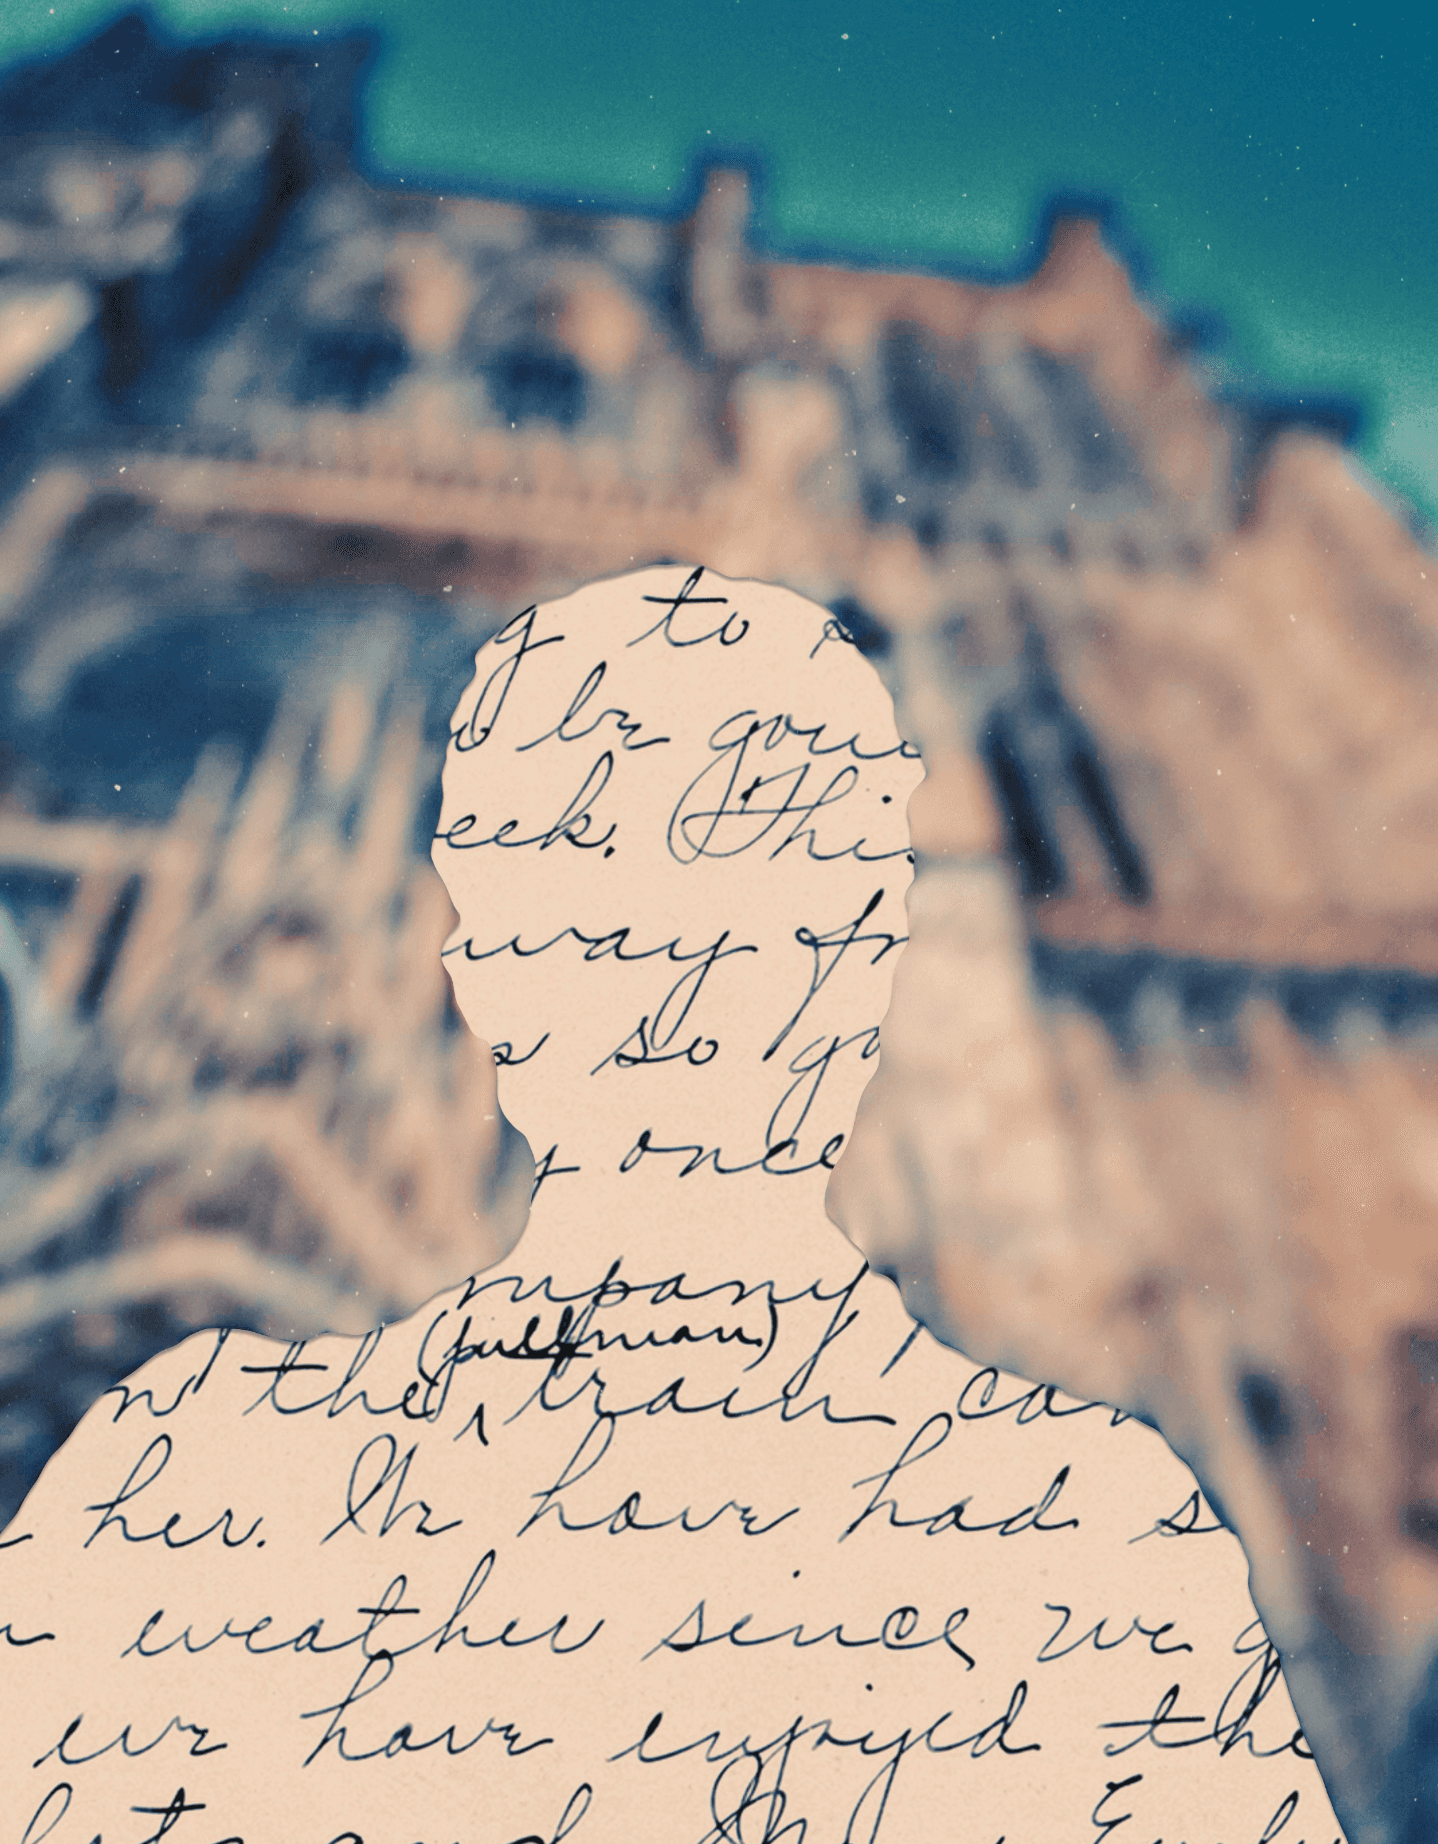 g to
be gon
eek. This
way fr
so go
y once
mpany
(pullman)
n the train, con
her. We have had s
weather since we g
we have enjoyed the
and